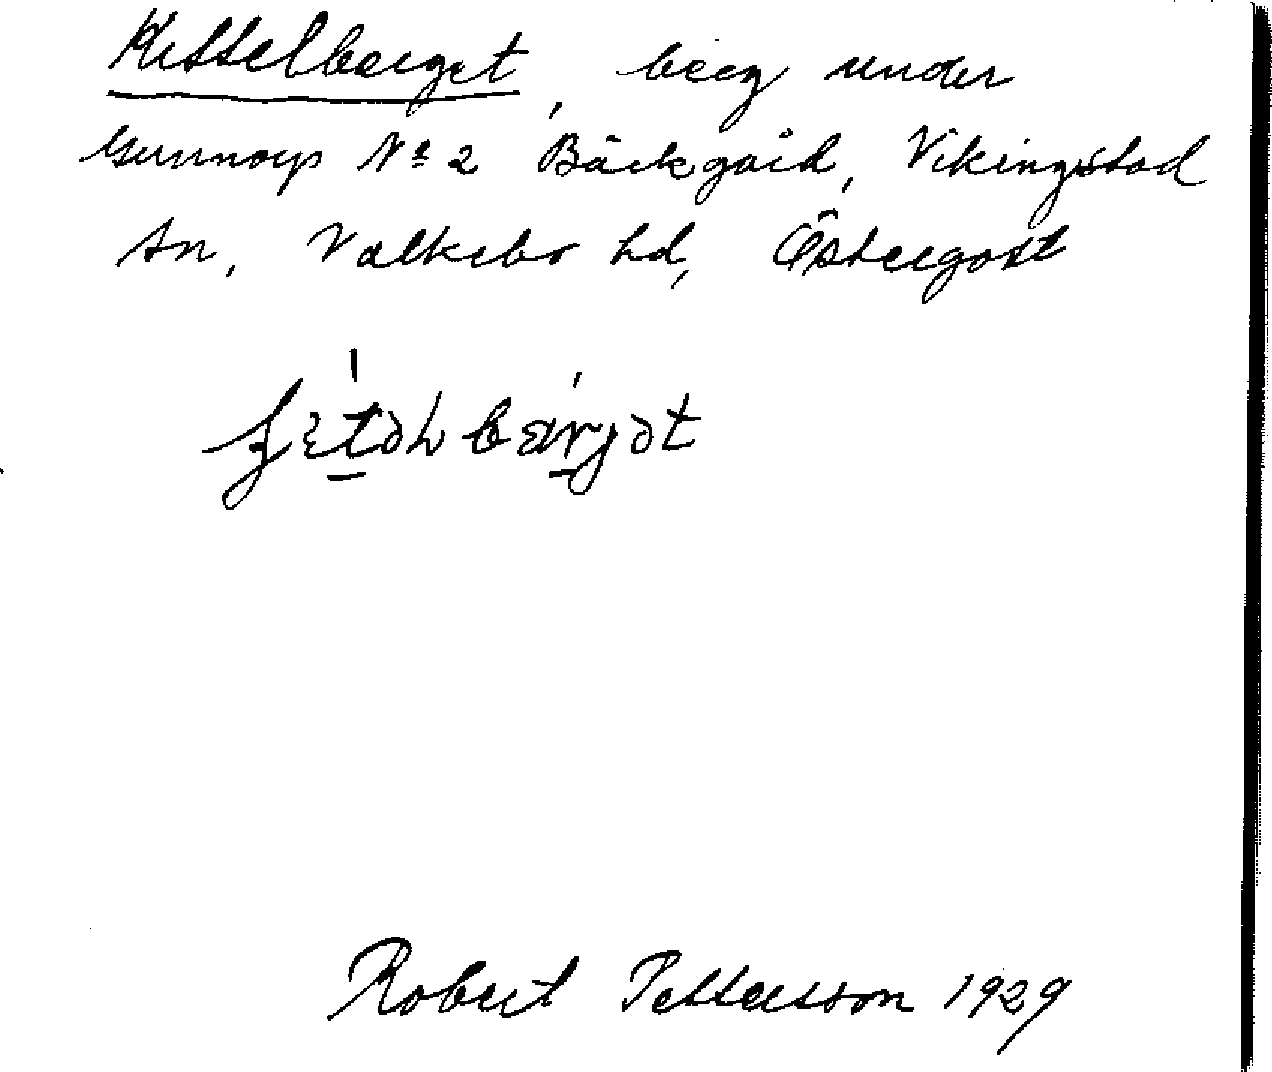 Kittelberget, berg under
Gunnorp No 2 Bäckgård, Vikingstad
sn, Valkebo hd, Östergötl
Robert Pettersson 1929